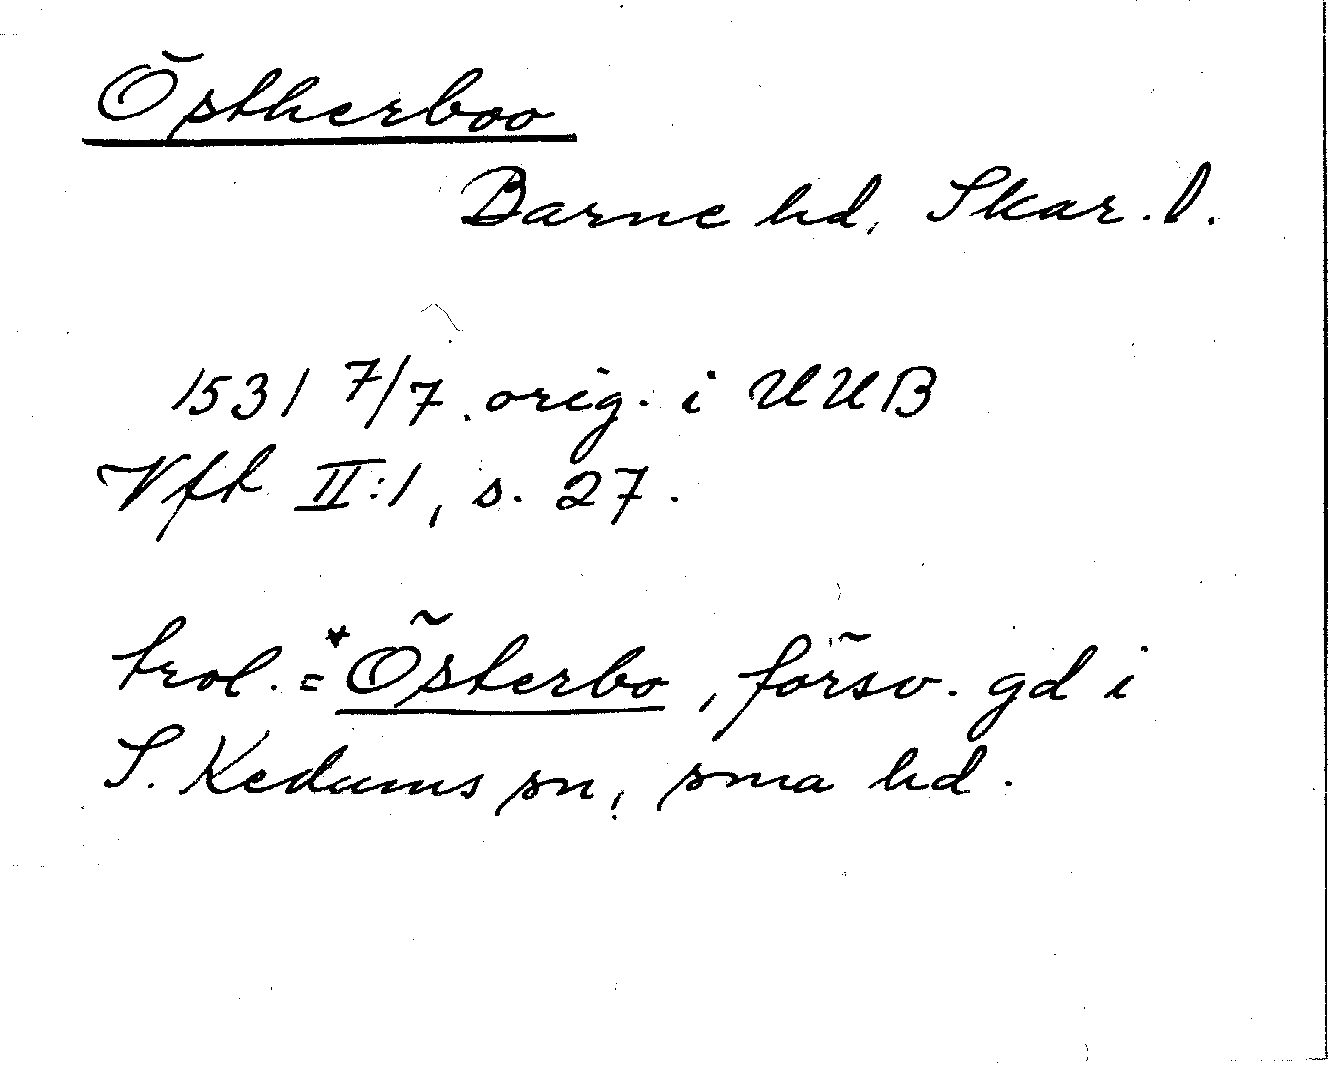 Östherboo
Barne hd, Skar. l.
1531 7/7. orig. i UUB
Vft II:1, s. 27.
trol. = *Österbo, försv. gd i
S. Kedums sn, sma hd.